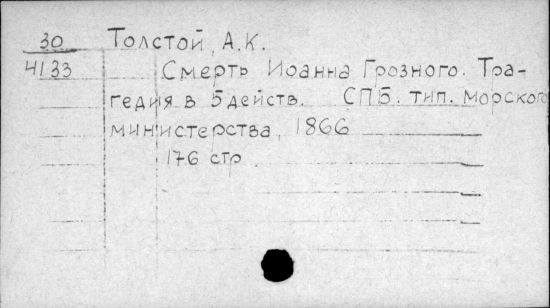 30 Толстой, А.К.
4133 Смерть Иоанна Грозного. Тра-
гедия в 5 действ. СПБ. тип. Морского
министерства, 1866
176 стр